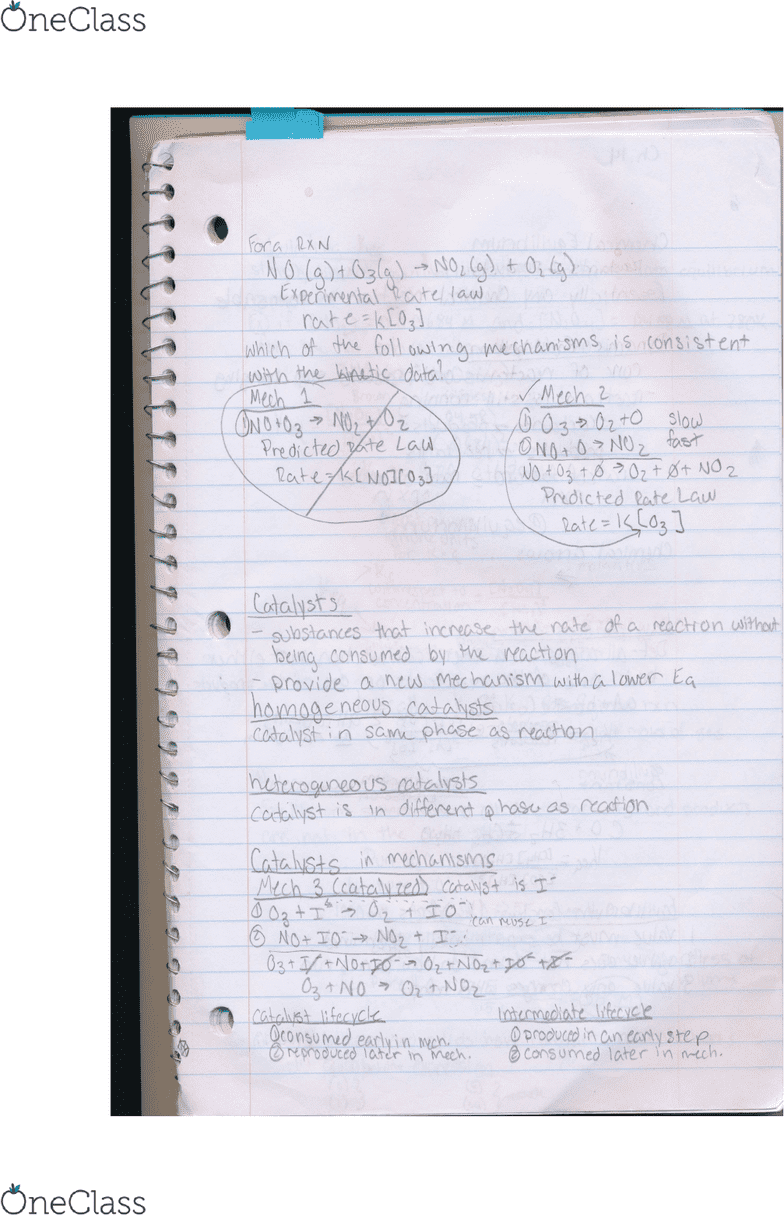 OneClass
For a RXN
NO(g) + O₃(g) → NO₂(g) + O₂(g)
Experimental Rate law
rate = k[O₃]
which of the following mechanisms is consistent
with the kinetic data?
Mech 1
① NO + O₃ → NO₂ + O₂
Predicted Rate Law
Rate = k[NO][O₃]
✓ Mech 2
① O₃ → O₂ + O slow
② NO + O → NO₂ fast
NO + O₃ + O → O₂ + O + NO₂
Predicted Rate Law
Rate = k[O₃]
Catalysts
- substances that increase the rate of a reaction without
being consumed by the reaction
- provide a new mechanism with a lower Ea
homogeneous catalysts
catalyst in same phase as reaction
heterogeneous catalysts
catalyst is in different phase as reaction
Catalysts in mechanisms
Mech 3 (catalyzed) catalyst is I⁻
① O₃ + I⁻ → O₂ + IO⁻
can reuse I⁻
② NO + IO⁻ → NO₂ + I⁻
O₃ + I⁻ + NO + IO⁻ → O₂ + NO₂ + IO⁻ + I⁻
O₃ + NO → O₂ + NO₂
catalyst lifecycle
① consumed early in mech.
② reproduced later in mech.
Intermediate lifecycle
① produced in an early step
② consumed later in mech.
OneClass